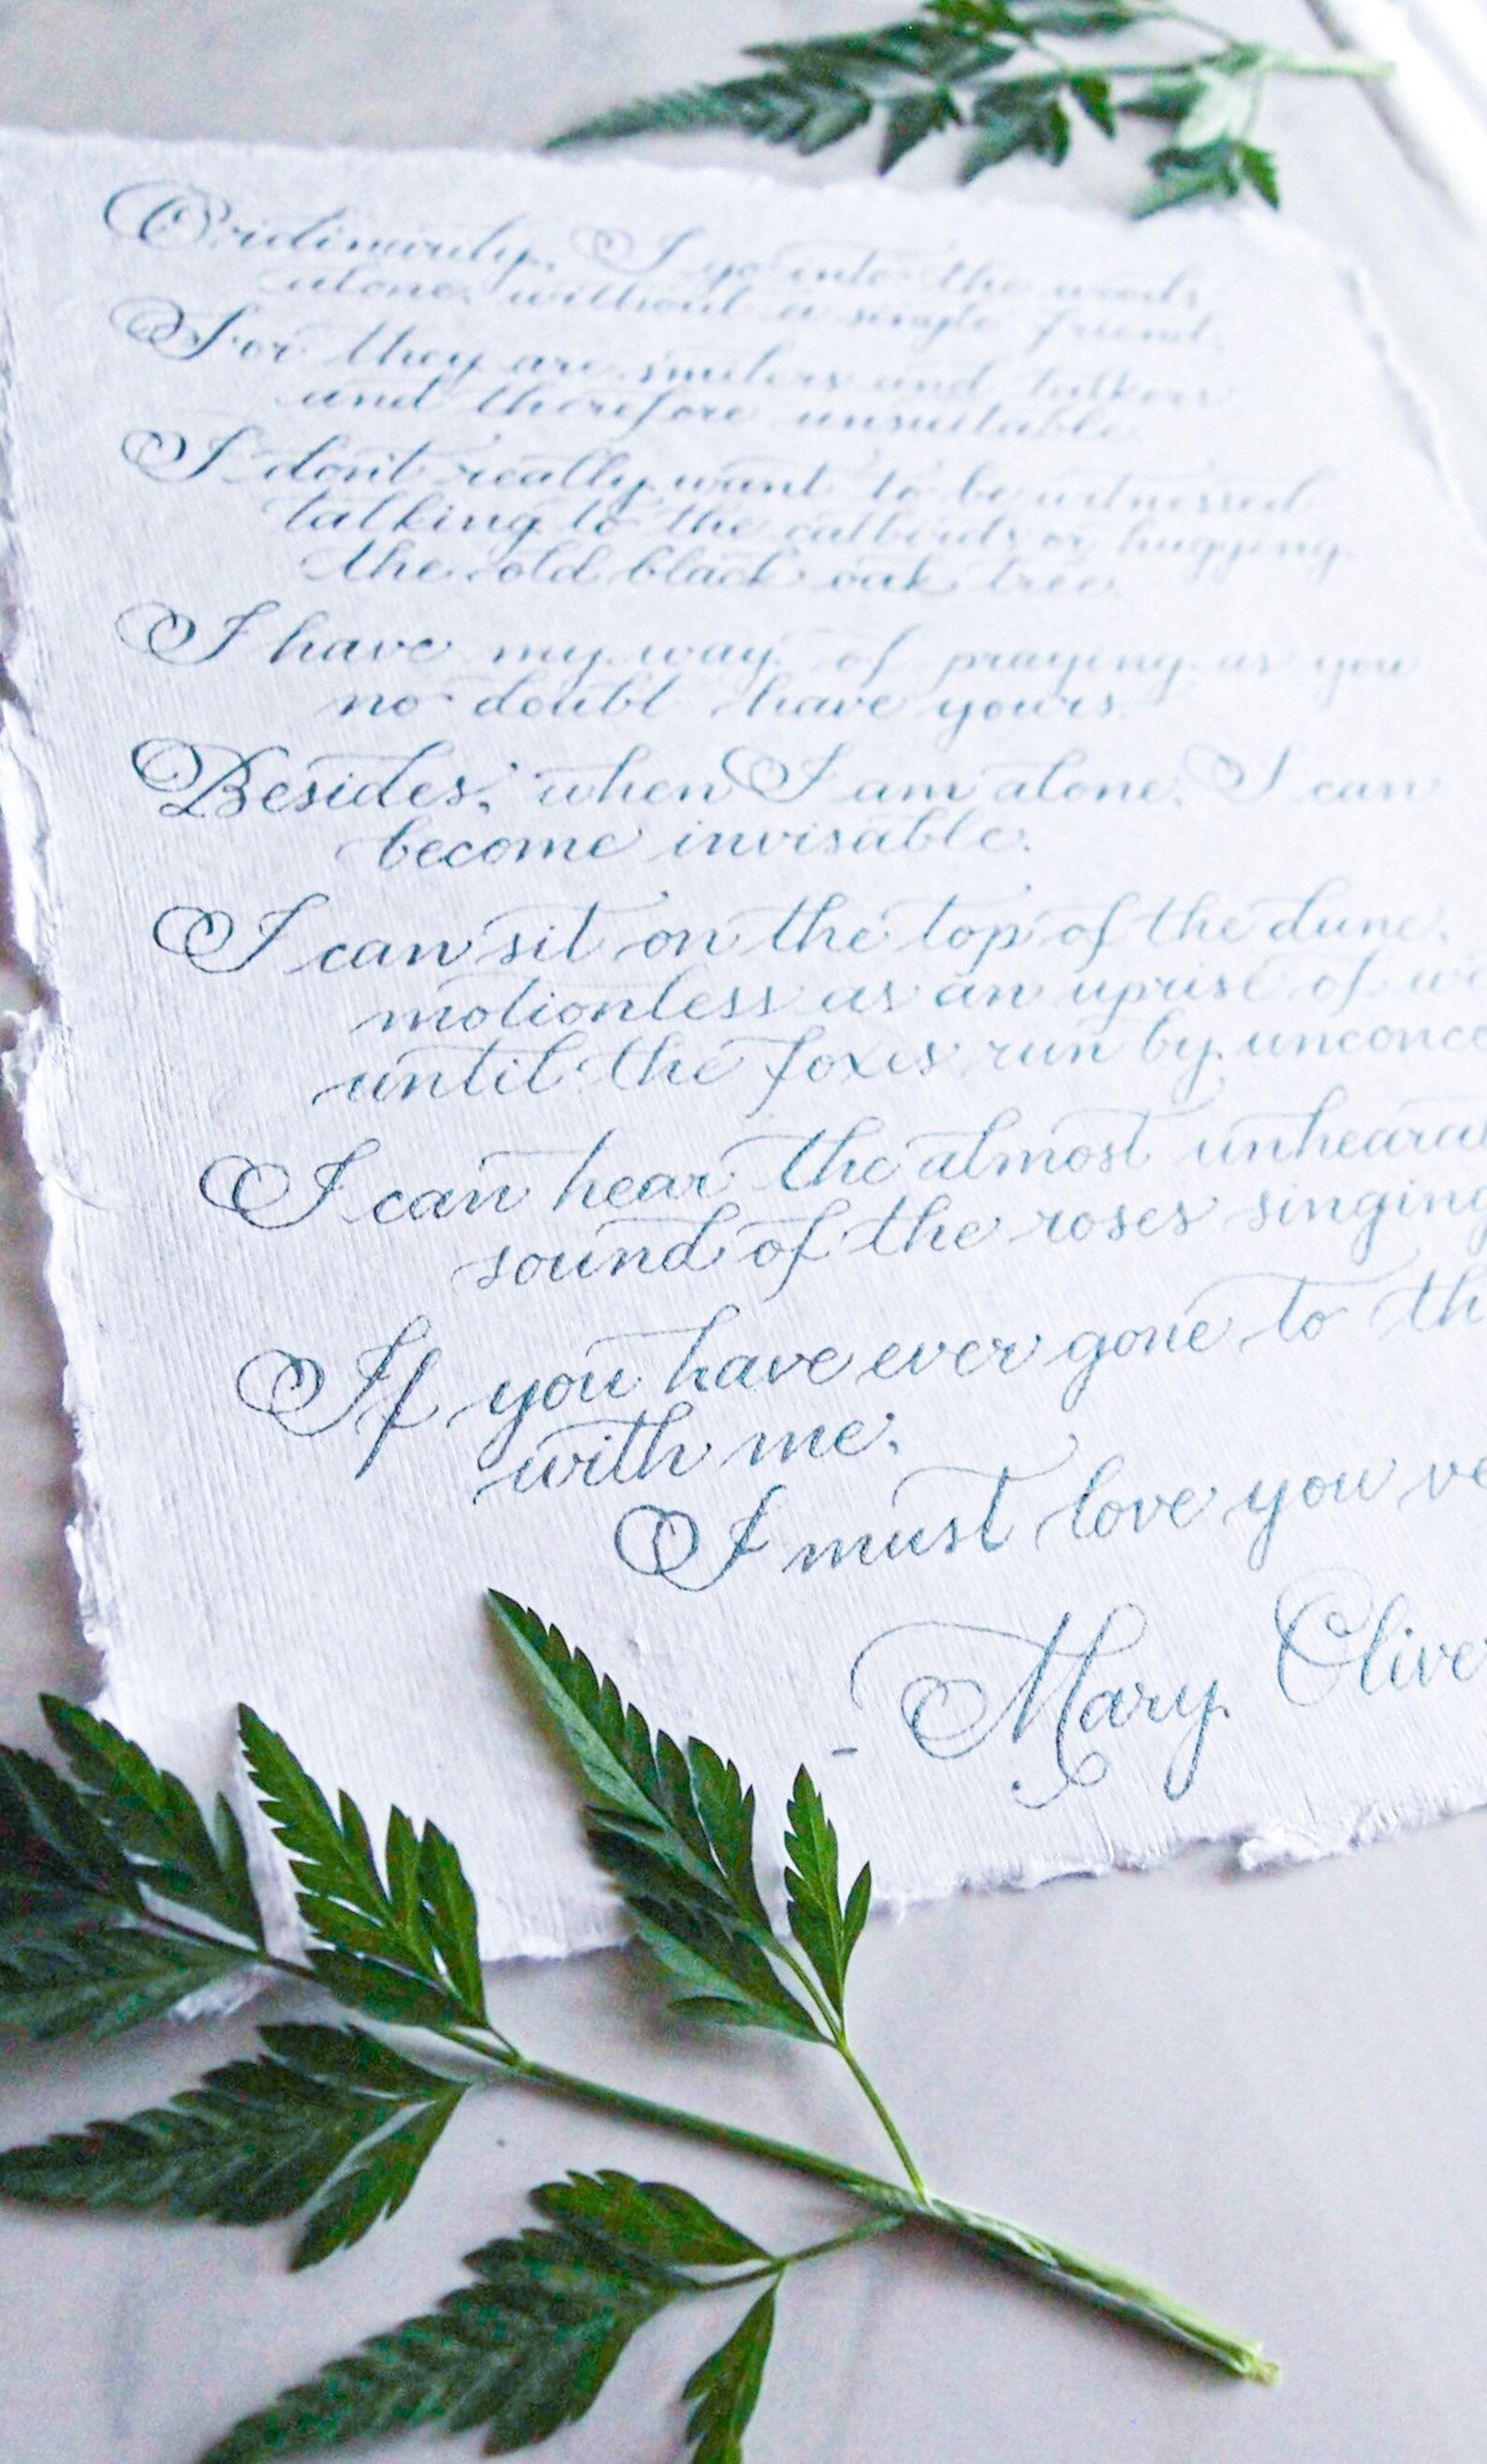 Ordinarily, I go into the woods
alone, without a single friend,
For they are smilers and talkers
and therefore unsuitable.
I don't really want to be witnessed
talking to the catbirds or hugging
the old black oak tree.
I have my way of praying as you
no doubt have yours.
Besides, when I am alone, I can
become invisable.
I can sit on the top of the dune,
motionless as an uprise of we
until the foxes run by unconce
I can hear the almost unheara
sound of the roses singing
If you have ever gone to th
with me,
I must love you ve
- Mary Oliver